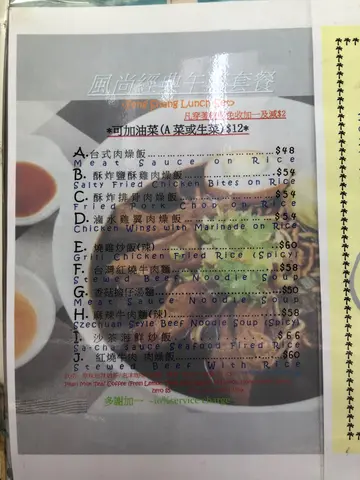 風尚經典午市套餐
Lunch Set
*可加油菜(A菜或生菜)$12*
A.台式肉燥飯 $48
Meat Sauce on Rice
B. 酥炸鹽酥雞肉燥飯 $54
Salty Fried Chicken Bites on Rice
C. 酥炸排骨肉燥飯 $54
Fried Pork Chop on Rice
D. 滷水雞翼肉燥飯 $54
Chicken Wings with Marinade on Rice
E. 燒雞炒飯(辣) $60
Grill Chicken Fried Rice (Spicy)
F. 台灣紅燒牛肉麵 $58
Stewed Beef Noodle Soup
G. 香菇擔仔湯麵 $50
Meat Sauce Noodle Soup
H. 麻辣牛肉麵(辣) $58
Szechuan Style Beef Noodle Soup (Spicy)
I. 沙茶海鮮炒飯 $66
Sa-cha Sauce Seafood Fried Rice
J. 紅燒牛肉 肉燥飯 $60
Stewed Beef With Rice
多謝加一 ~10% service charge~